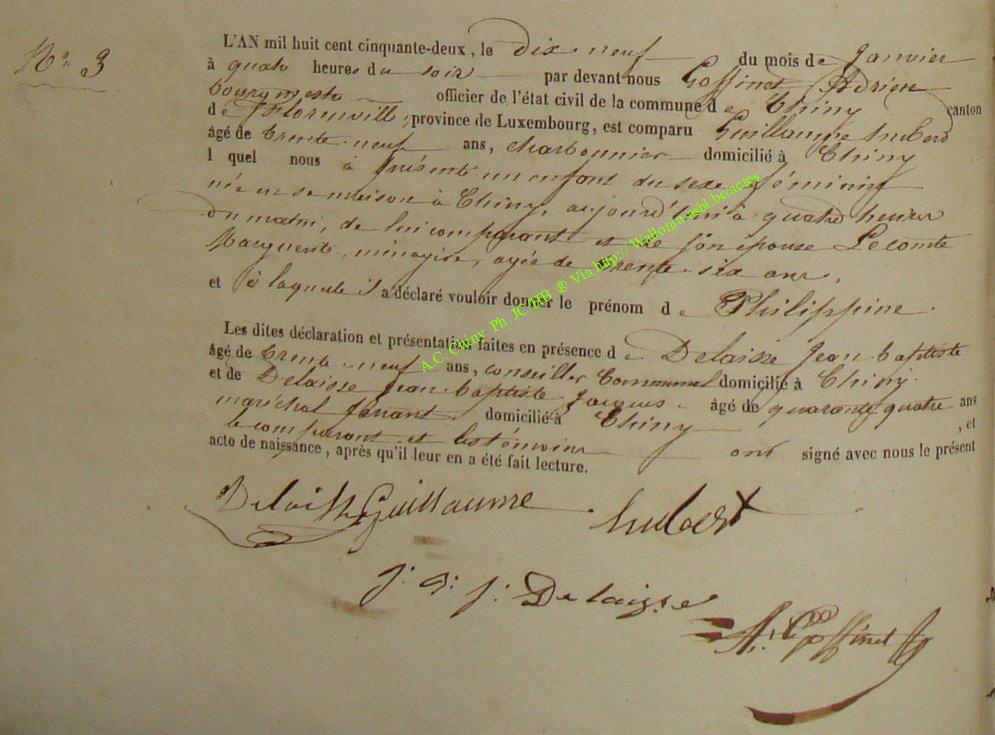 No 3
L'AN mil huit cent cinquante-deux, le dix neuf du mois de Janvier
à quatre heures du soir par devant nous Goffinet Adrien
bourgmestre officier de l'état civil de la commune de Chiny canton
de Florenville, province de Luxembourg, est comparu Guillaume hubert
âgé de trente neuf ans, charbonnier domicilié à Chiny
lequel nous à présenté un enfant du sexe féminin
née en sa maison à Chiny, aujourd'hui à quatre heures
du matin, de lui comparant et de son épouse Lecomte
Marguerite, ménagère, agée de trente-six ans,
et à laquelle il a déclaré vouloir donner le prénom de Philippine.
Les dites déclaration et présentation faites en présence de Delaisse Jean baptiste
âgé de trente-neuf ans, conseiller Communal domicilié à Chiny.
et de Delaisse Jean baptiste Jacques âgé de quarante quatre ans
maréchal ferrant domicilié à Chiny , et
le comparant et les témoins ont signé avec nous le présent
acte de naissance, après qu'il leur en a été fait lecture.
Delaisse Guillaume hubert
j. b. j. Delaisse
A. Goffinet
A.C. Chiny Ph. JCMB ® Via http://Wallonia.asbl.be/actes